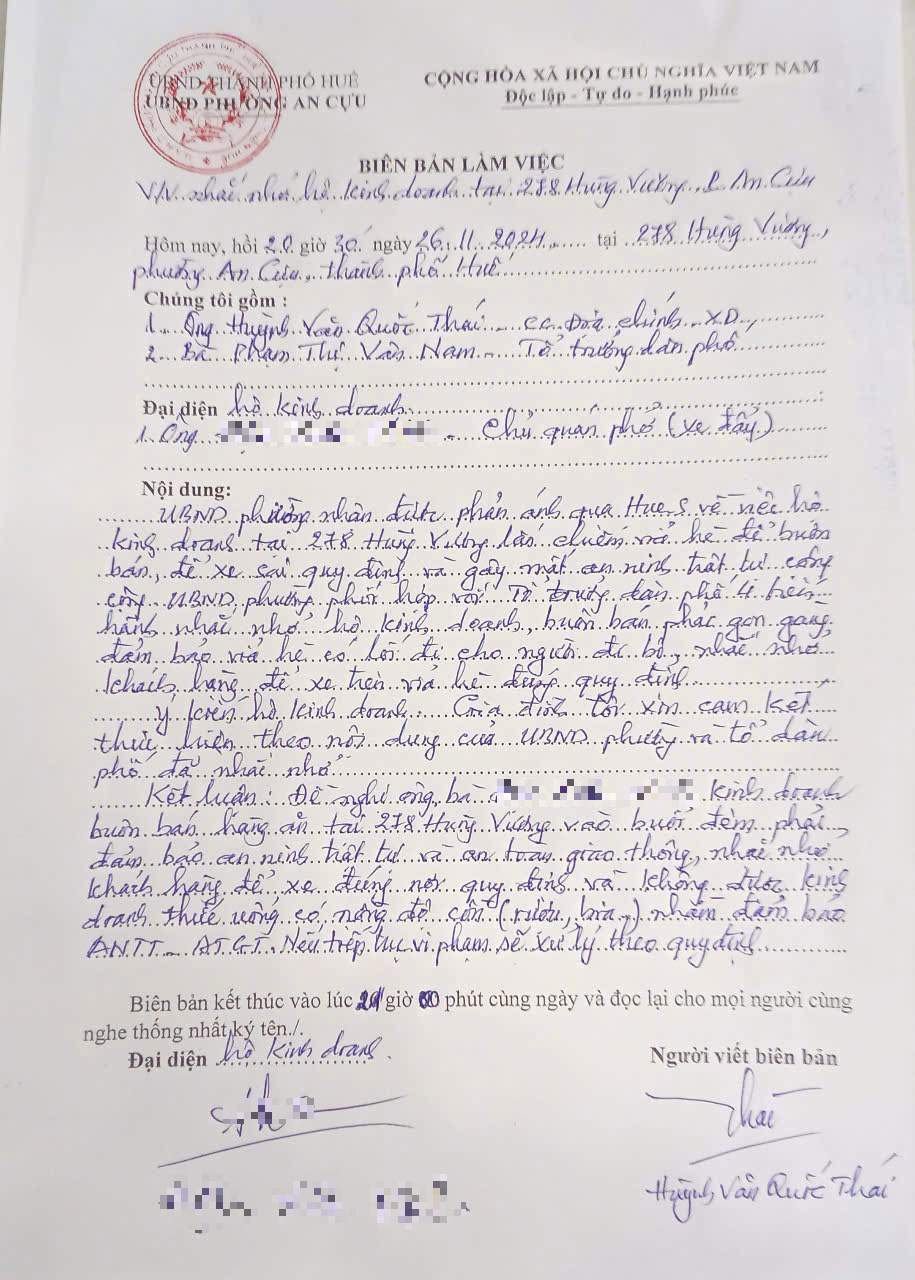 UBND THÀNH PHỐ HUẾ
UBND PHƯỜNG AN CỰU
CỘNG HÒA XÃ HỘI CHỦ NGHĨA VIỆT NAM
Độc lập - Tự do - Hạnh phúc
BIÊN BẢN LÀM VIỆC
V/v nhắc nhở hộ kinh doanh tại 278 Hùng Vương, P. An Cựu
Hôm nay, hồi 20 giờ 30 ngày 26.11.2024 tại 278 Hùng Vương,
phường An Cựu, thành phố Huế
Chúng tôi gồm :
1. Ông Huỳnh Văn Quốc Thái - CC Địa chính - XD,
2. Bà Phạm Thị Vân Nam - Tổ trưởng dân phố
Đại diện hộ kinh doanh
1. Ông - Chủ quán phở (xe đẩy)
Nội dung:
UBND phường nhận được phản ánh qua Hue_S về việc hộ
kinh doanh tại 278 Hùng Vương lấn chiếm vỉa hè để buôn
bán, để xe sai quy định và gây mất an ninh trật tự công
cộng. UBND phường phối hợp với Tổ trưởng dân phố 4 tiến
hành nhắc nhở hộ kinh doanh, buôn bán phải gọn gàng
đảm bảo vỉa hè có lối đi cho người đi bộ, nhắc nhở
khách hàng để xe trên vỉa hè đúng quy định.
Ý kiến hộ kinh doanh: Gia đình tôi xin cam kết
thực hiện theo nội dung của UBND phường và tổ dân
phố đã nhắc nhở
Kết luận: Đề nghị ông, bà kinh doanh
buôn bán hàng ăn tại 278 Hùng Vương vào buổi đêm phải
đảm bảo an ninh trật tự và an toàn giao thông, nhắc nhở
khách hàng để xe đúng nơi quy định và không được kinh
doanh thức uống có nồng độ cồn (rượu, bia,..) nhằm đảm bảo
ANTT - ATGT. Nếu tiếp tục vi phạm sẽ xử lý theo quy định
Biên bản kết thúc vào lúc 21 giờ 00 phút cùng ngày và đọc lại cho mọi người cùng
nghe thống nhất ký tên./.
Đại diện hộ kinh doanh
Người viết biên bản
Thái
Huỳnh Văn Quốc Thái